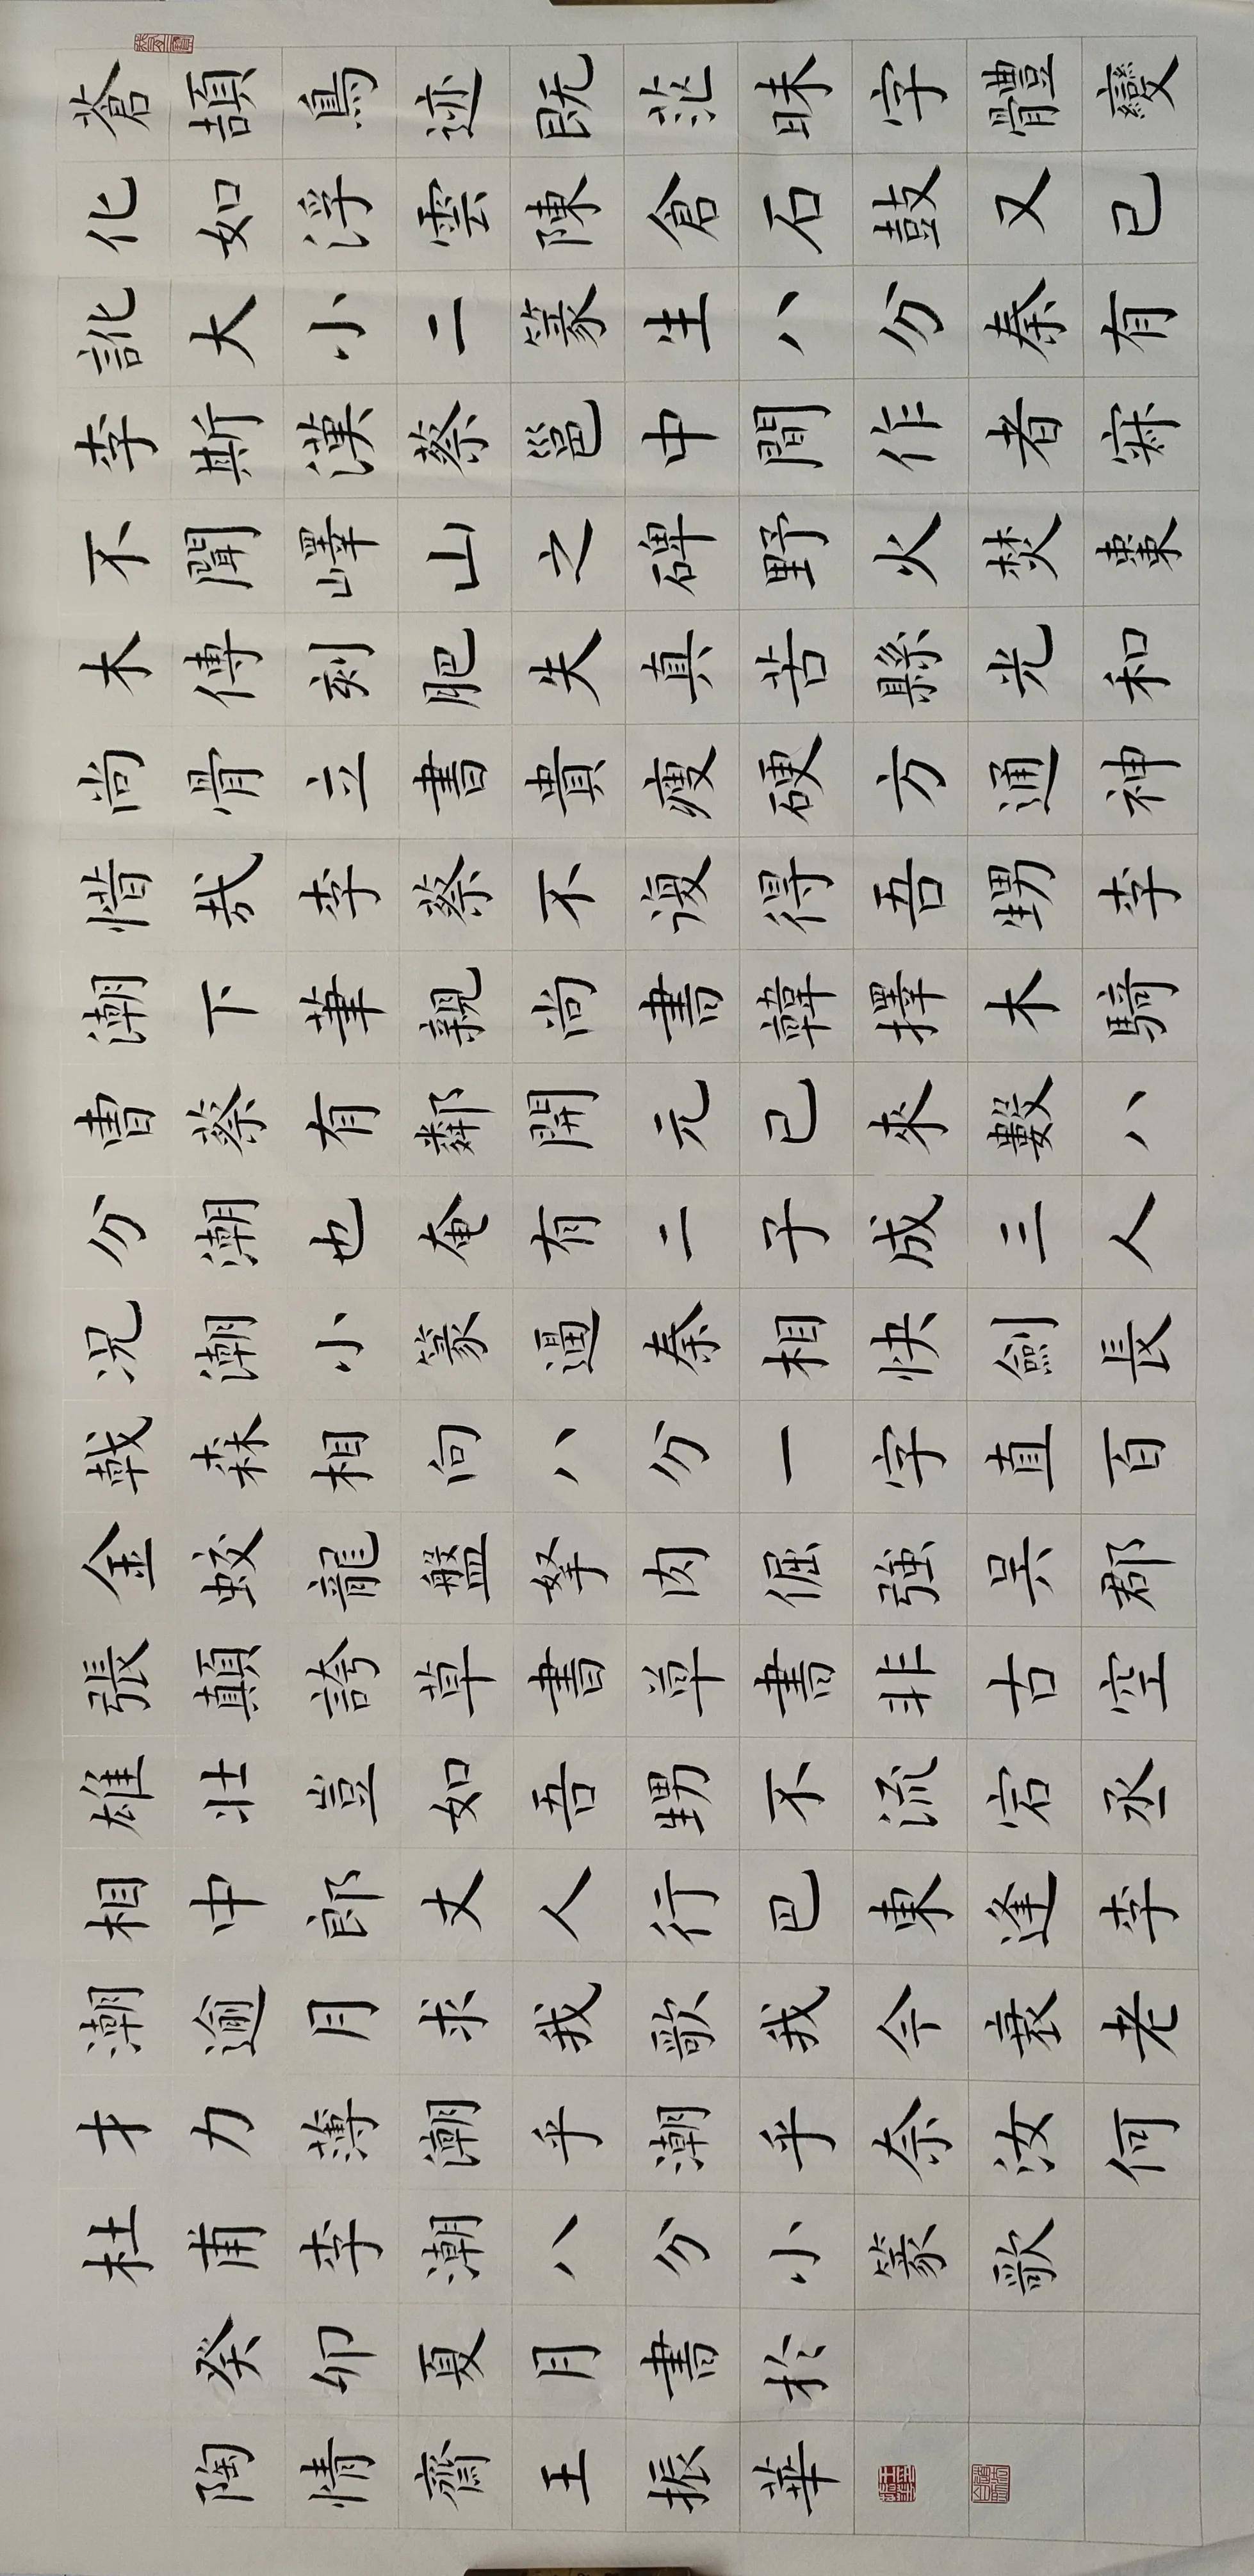 蒼頡鳥迹既茫昧字體變
化如浮雲陳倉石鼓又已
訛大小二篆生八分秦有
李斯漢蔡邕中間作者寂
不聞嶧山之碑野火焚棗
木傳刻肥失真苦縣光和
尚骨立書貴瘦硬方通神
惜哉李蔡不復得吾甥李
潮下筆親尚書韓擇木騎
曹蔡有鄰開元已來數八
分潮也奄有二子成三人
况潮小篆逼秦相快劍長
戟森相向八分一字直百
金蛟龍盤拏肉倔強吳郡
張顛誇草書草書非古空
雄壯豈如吾甥不流宕丞
相中郎丈人行巴東逢李
潮逾月求我歌我今衰老
才力薄潮乎潮乎奈汝何
杜甫李潮八分小篆歌
癸卯夏月書於
陶情齋王振華